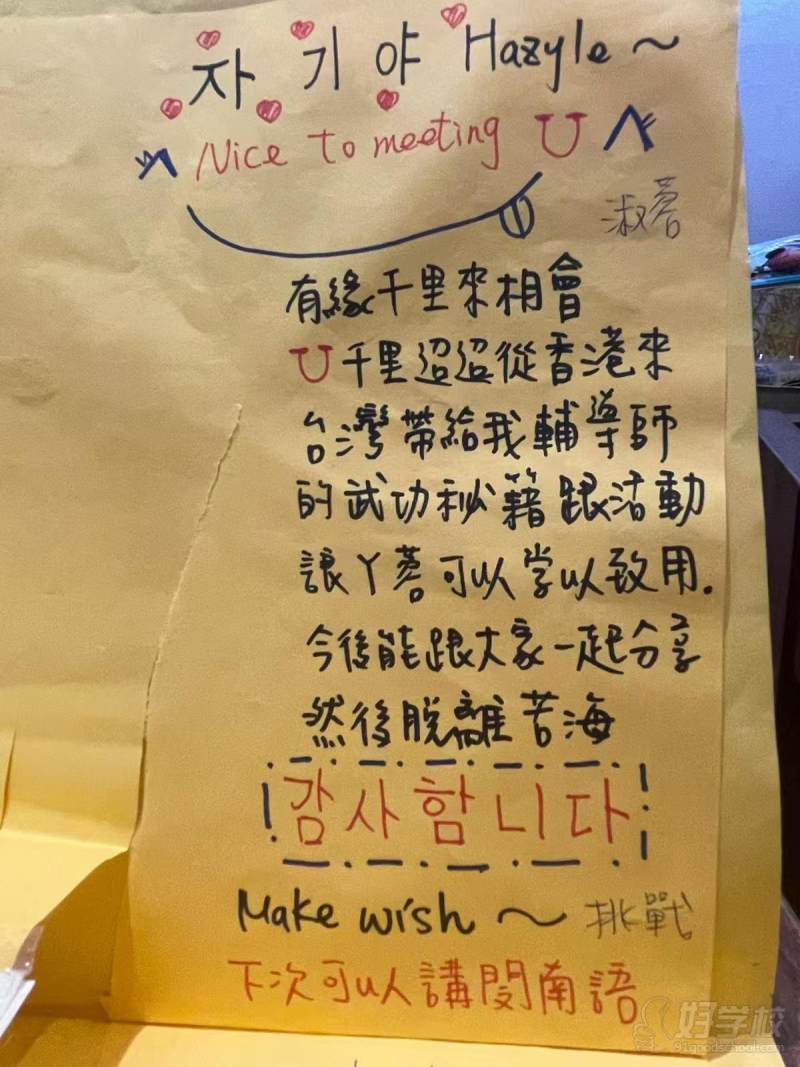 자기야 Hazyle～
Nice to meeting U
淑蓉
有緣千里來相會
U千里迢迢從香港來
台灣帶給我輔導師
的武功秘籍跟活動
讓ㄚ蓉可以学以致用.
今後能跟大家一起分享
然後脫離苦海
감사합니다
Make wish～挑戰
下次可以講閩南語
好学校
91goodschool.com